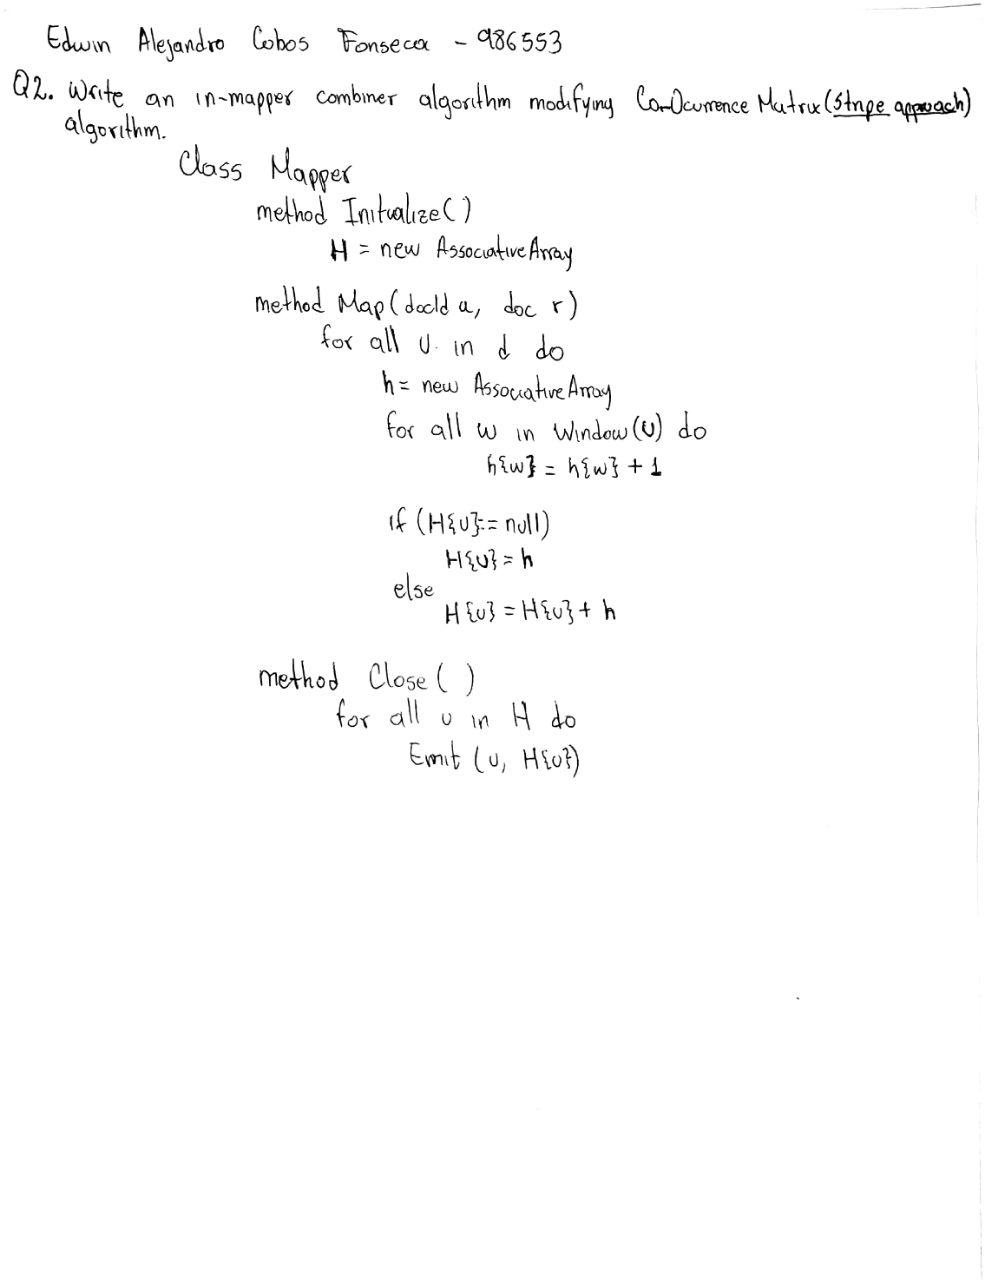 Edwin Alejandro Cobos Fonseca - 986553
Q2. Write an in-mapper combiner algorithm modifying Co-Ocurrence Matrix (Stripe approach)
algorithm.
Class Mapper
method Initialize()
H = new AssociativeArray
method Map(docId a, doc r)
for all u in d do
h = new AssociativeArray
for all w in Window(u) do
h{w} = h{w} + 1
if (H{u} == null)
H{u} = h
else
H{u} = H{u} + h
method Close( )
for all u in H do
Emit (u, H{u})